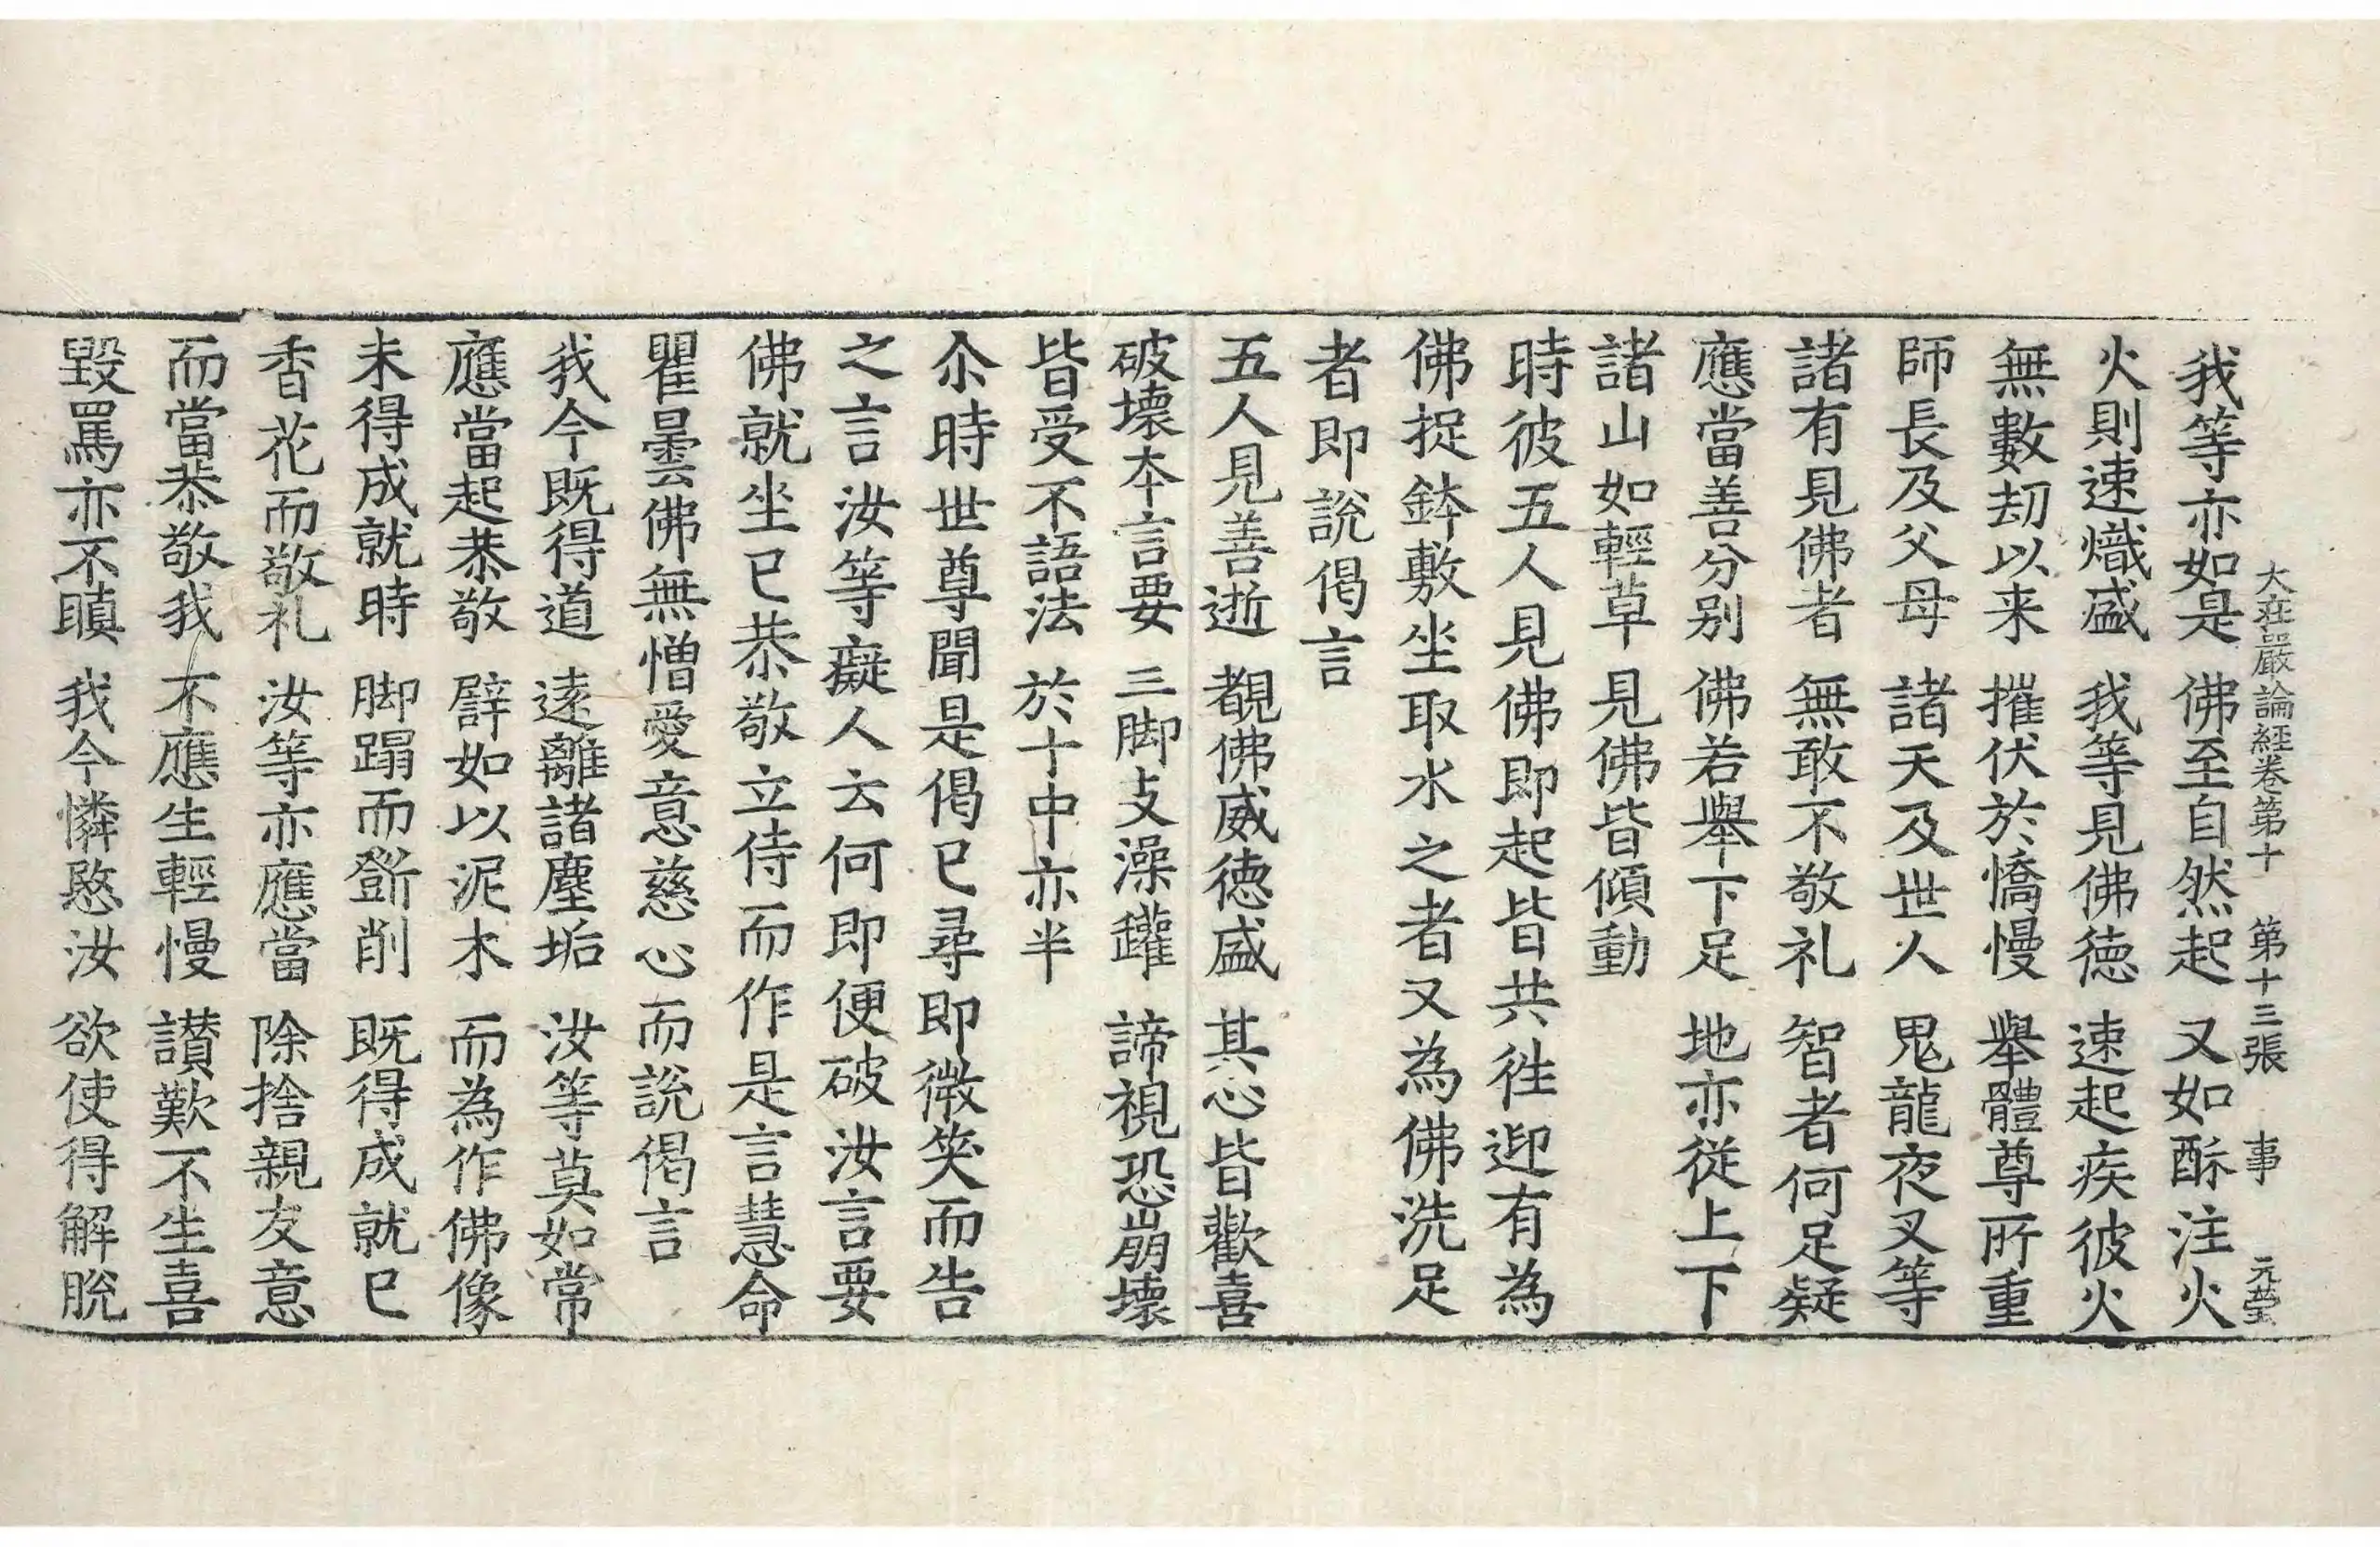 大庄嚴論経卷第十　第十三張　事　元瑩
我等亦如是　佛至自然起　又如酥注火
火則速熾盛　我等見佛徳　速起疾彼火
無數劫以来　摧伏於憍慢　舉體尊所重
師長及父母　諸天及世人　鬼龍夜叉等
諸有見佛者　無敢不敬礼　智者何足疑
應當善分别　佛若舉下足　地亦從上下
諸山如輕草　見佛皆傾動
時彼五人見佛即起皆共徃迎有為
佛捉鉢敷坐取水之者又為佛洗足
者即説偈言
五人見善逝　覩佛威徳盛　其心皆歡喜
破壞本言要　三脚支澡鑵　諦視恐崩壞
皆受不語法　於十中亦半
尒時世尊聞是偈已尋即微笑而告
之言汝等癡人云何即便破汝言要
佛就坐已恭敬立侍而作是言慧命
瞿曇佛無憎愛意慈心而説偈言
我今既得道　遠離諸塵垢　汝等莫如常
應當起恭敬　譬如以泥木　而為作佛像
未得成就時　脚蹋而斲削　既得成就已
香花而敬礼　汝等亦應當　除捨親友意
而當恭敬我　不應生輕慢　讃歎不生喜
毀罵亦不瞋　我今憐愍汝　欲使得解脫